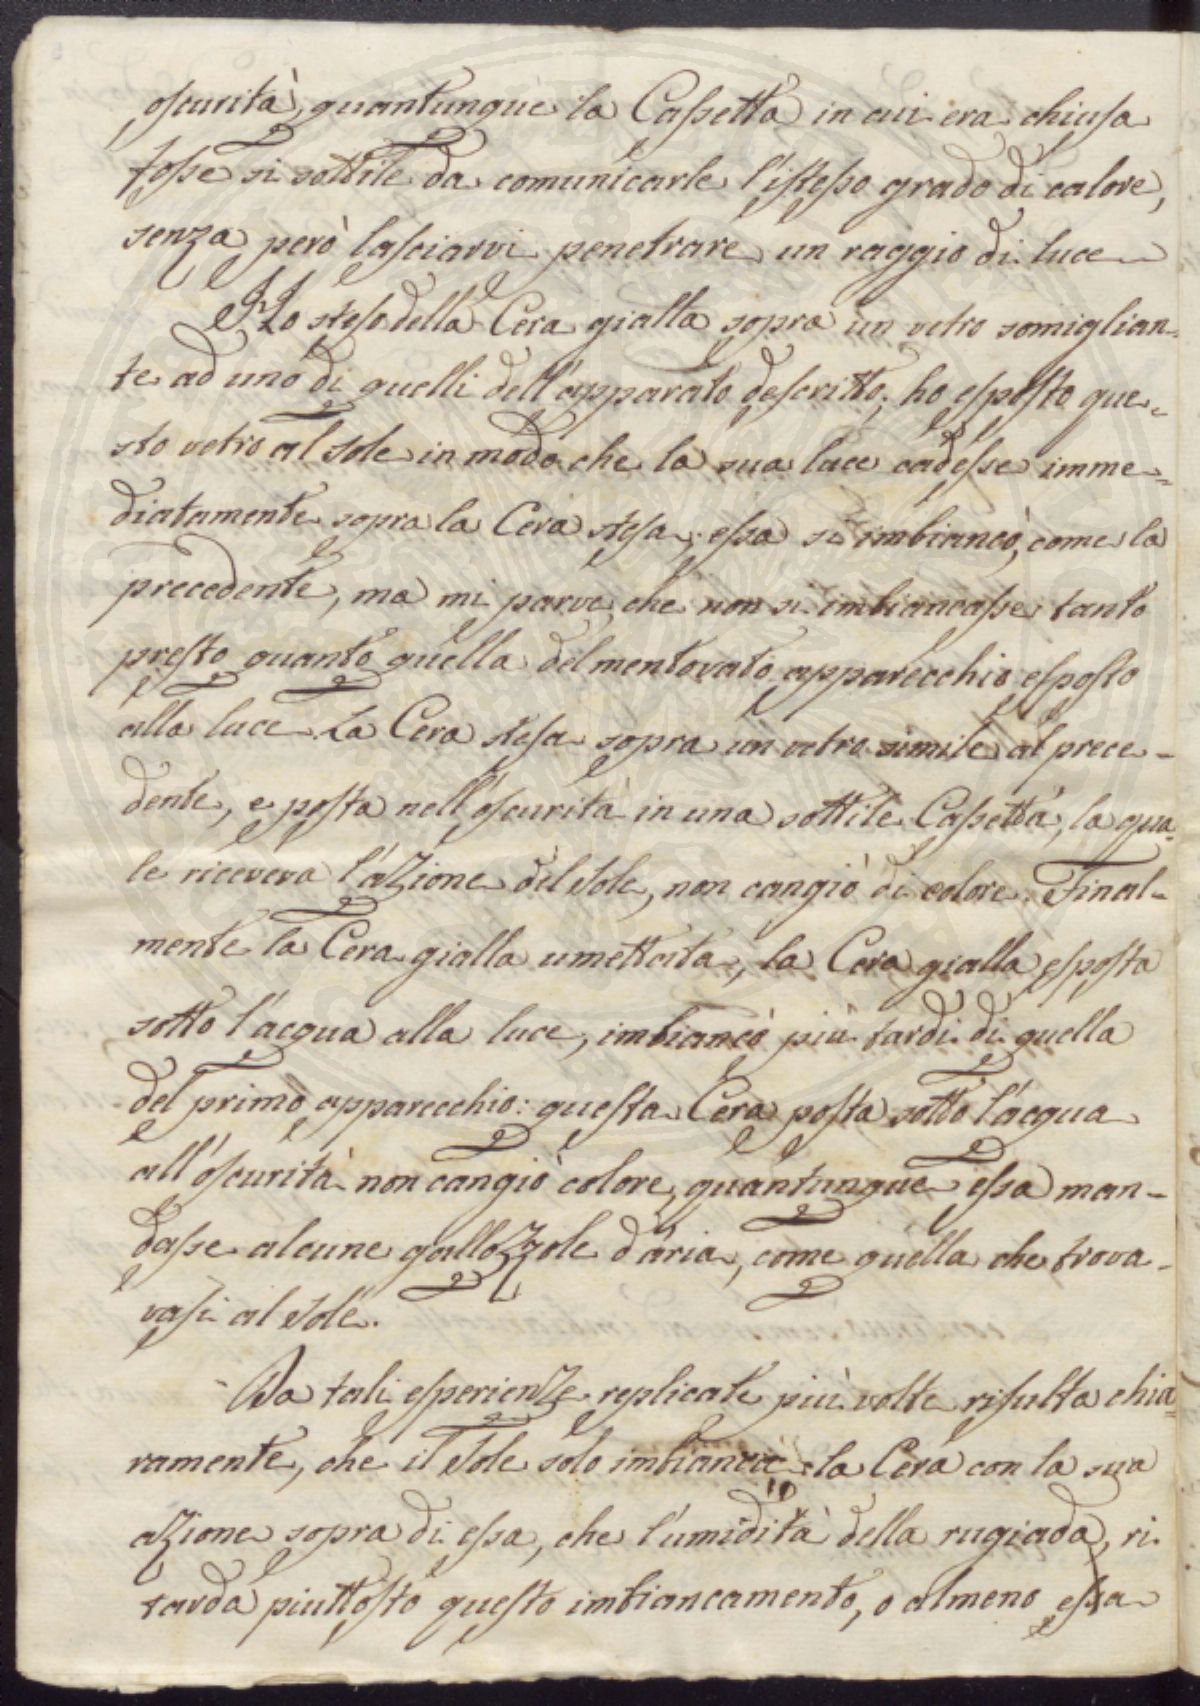 oscurità, quantunque la Cassetta in cui era chiusa
fosse si sottile da comunicarle l'istesso grado di calore,
senza però lasciarvi penetrare un raggio di luce
Ho steso della Cera gialla sopra un vetro somiglian=
te ad uno di quelli dell'apparato descritto; ho esposto que=
sto vetro al Sole in modo che la sua luce cadesse imme=
diatamente sopra la Cera stesa; essa si imbiancò, come la
precedente, ma mi parve, che non si imbiancasse tanto
presto quanto quella del mentovato apparecchio esposto
alla luce. La Cera stesa sopra un vetro simile al prece-
dente, e posta nell'oscurità in una sottile Cassetta, la qua=
le riceveva l'azione del Sole, non cangiò di colore. Final-
mente la Cera gialla umettata, la Cera gialla esposta
sotto l'acqua alla luce, imbiancò più tardi di quella
del primo apparecchio: questa Cera posta sotto l'acqua
all'oscurità non cangiò colore, quantunque essa man-
dasse alcune gallozzole d'aria, come quella che trova-
vasi al Sole.
Da tali esperienze replicate più volte risulta chia=
ramente, che il Sole solo imbiancò la Cera con la sua
azione sopra di essa, che l'umidità della rugiada, ri-
tarda piuttosto questo imbiancamento, o almeno essa